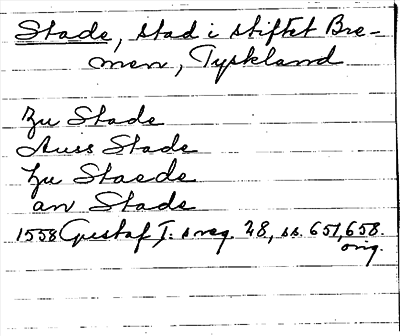 Stade, stad i stiftet Bre-
men, Tyskland
Zu Stade
Auss Stade
Zu Staede
an Stade
1558 Gustaf I:s reg. 28, ss. 657, 658.
orig.